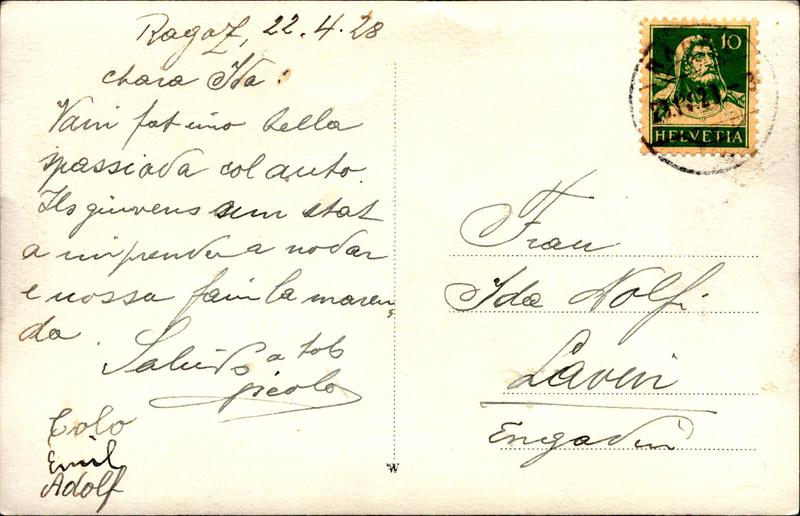 Ragaz, 22.4.28
chara Ida:
Vain fat uno bella
spassiada col auto.
Ils giuvens sun stat
a imprender a nodar
e nossa fain la maren,
da.
Salüds a tots
Colo
Emil
Adolf
10
HELVETIA
Frau
Ida Nolfi.
Lavin
Engadin